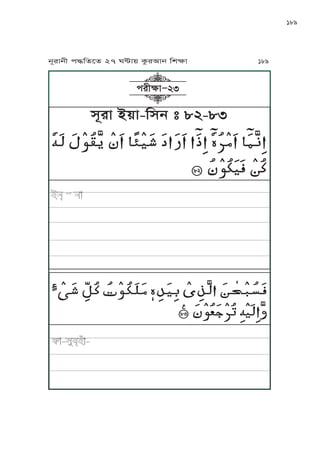 ১৮৯
নূরানী পদ্ধতিতে ২৭ ঘন্টায় কুরআন শিক্ষা ১৮৯
পরীক্ষা–২৩
সূরা ইয়া-সিন ঃ ৮২-৮৩
اِنَّمَاۤ اَمْرُهٗۤ اِذَاۤ اَرَادَ شَيْـًٔا اَنْ يَّقُوْلَ لَهٗ
كُنْ فَيَكُوْنُ ﴿۸۲﴾
ইন্ – না
فَسُبْحٰنَ الَّذِىْ بِيَدِهٖ مَلَكُوْتُ كُلِّ شَىْءٍ
وَّاِلَيْهِ تُرْجَعُوْنَ ﴿۸۳﴾
ফা-সুব্হা-